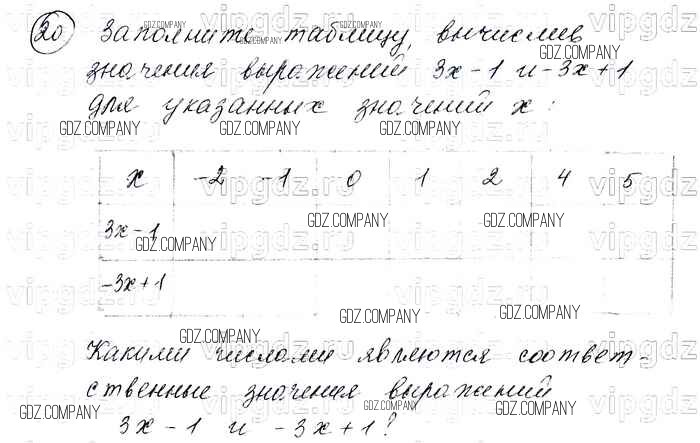 20 Заполните таблицу, вычислив
значения выражений 3x-1 и -3x+1
для указанных значений x:
x -2 -1 0 1 2 4 5
3x-1
-3x+1
Какими числами являются соответ-
ственные значения выражений
3x-1 и -3x+1?
GDZ.COMPANY
vipgdz.ru